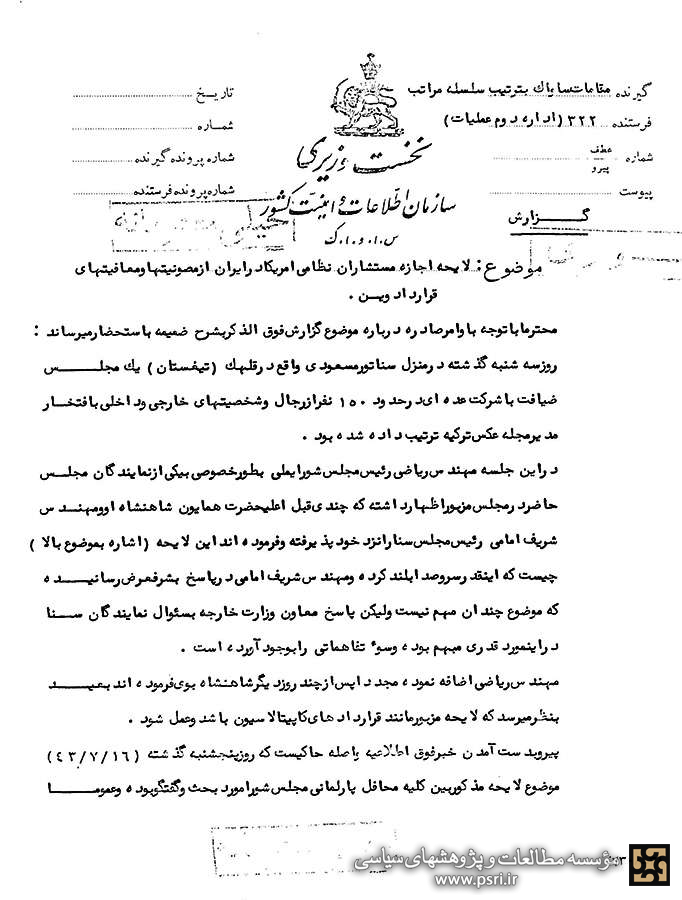 گیرنده مقامات ساواك بترتیب سلسله مراتب
فرستنده ۳۲۲ (اداره دوم عملیات)
شماره عطف پیرو
پیوست
گزارش
نخست وزیری
سازمان اطلاعات و امنیت کشور
س.ا.و.ا.ک
تاریخ
شماره
شماره پرونده گیرنده
شماره پرونده فرستنده
موضوع : لایحه اجازه مستشاران نظامی امریکا در ایران از مصونیتها و معافیتهای
قرارداد وین .
محترما با توجه باوامر صادره درباره موضوع گزارش فوق الذکر بشرح ضمیمه باستحضار میرساند :
روز سه شنبه گذشته در منزل سناتور مسعودی واقع در قلهك (تیغستان) یك مجلس
ضیافت با شرکت عده ای در حدود ۱۵۰ نفر از رجال و شخصیتهای خارجی و داخلی بافتخار
مدیر مجله عکس ترکیه ترتیب داده شده بود .
در این جلسه مهندس ریاضی رئیس مجلس شورایملی بطور خصوصی بیکی از نمایندگان مجلس
حاضر در مجلس مزبور اظهار داشته که چندی قبل اعلیحضرت همایون شاهنشاه او و مهندس
شریف امامی رئیس مجلس سنا را نزد خود پذیرفته و فرموده اند این لایحه (اشاره بموضوع بالا)
چیست که اینقدر سر و صدا بلند کرده و مهندس شریف امامی در پاسخ بشرفعرض رسانیده
که موضوع چندان مهم نیست ولیکن پاسخ معاون وزارت خارجه بسئوال نمایندگان سنا
در اینمورد قدری مبهم بوده و سوء تفاهماتی را بوجود آورده است .
مهندس ریاضی اضافه نموده مجددا پس از چند روز دیگر شاهنشاه بوی فرموده اند بعید
بنظر میرسد که لایحه مزبور مانند قراردادهای کاپیتالاسیون باشد و عمل شود .
پیرو بدست آمدن خبر فوق اطلاعیه واصله حاکیست که روز پنجشنبه گذشته (۴۳/۷/۱۶)
موضوع لایحه مذکور بین کلیه محافل پارلمانی مجلس شورا مورد بحث و گفتگو بوده و عموما
مؤسسه مطالعات و پژوهشهای سیاسی
www.psri.ir